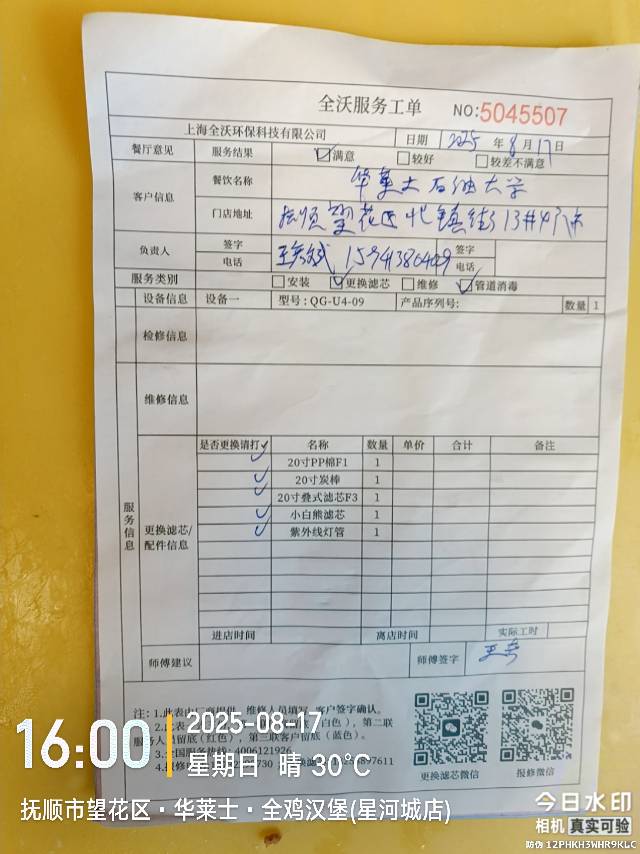 全沃服务工单 NO:5045507
上海全沃环保科技有限公司 日期 2025 年 8 月 17 日
餐厅意见 服务结果 ☑满意 □较好 □较差不满意
客户信息 餐饮名称 华莱士石油大学
门店地址 抚顺望花区
负责人 签字 签字
电话 电话
服务类别 □安装 ☑更换滤芯 □维修 ☑管道消毒
设备信息 设备一 型号:QG-U4-09 产品序列号: 数量 1
检修信息
维修信息
服务信息
更换滤芯/配件信息
是否更换请打✓ 名称 数量 单价 合计 备注
✓ 20寸PP棉F1 1
✓ 20寸炭棒 1
✓ 20寸叠式滤芯F3 1
✓ 小白熊滤芯 1
✓ 紫外线灯管 1
进店时间 离店时间 实际工时
师傅建议 师傅签字
注:1.此表由厂商提供,维修人员填写,客户签字确认。
2.此表 白色),第二联
服务人 留底(红色),第三联客户留底(蓝色)。
3.全国服务热线:4006121926
更换滤芯微信 报修微信
16:00 2025-08-17
星期日 晴 30℃
抚顺市望花区·华莱士·全鸡汉堡(星河城店)
今日水印
相机 真实可验
防伪 12PHKH3WHR9KLC